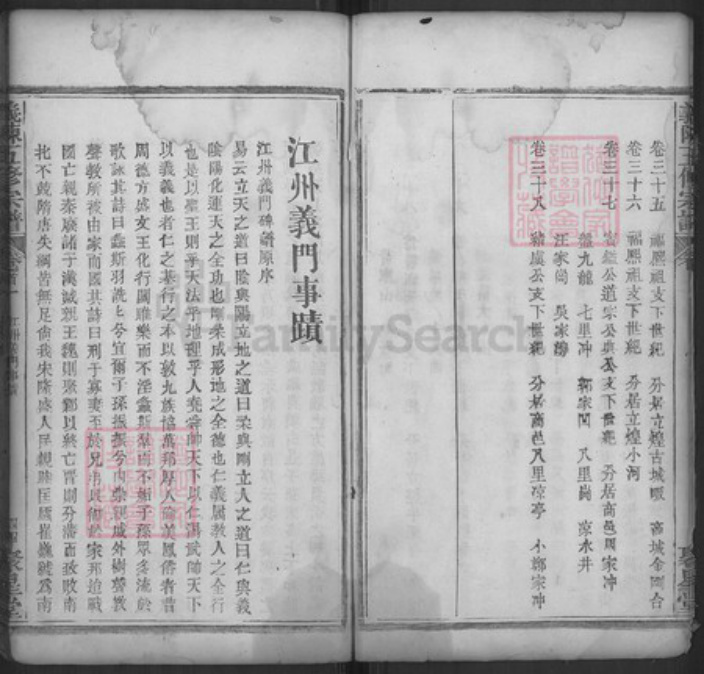 卷三十五 福熙祖支下世紀 分居立煌古城畈 商城金剛台
卷三十六 福熙祖支下世紀 分居立煌小河
卷三十七 公道宗公與支下世紀 分居商邑周家冲
九龍 七里冲 鄭家岡 八里崗 凉水井
汪家崗 吳家
卷三十八 公支下世紀 分居商邑八里凉亭 小鄭家冲
江州義門事蹟
江州義門碑譜原序
易云立天之道曰陰與陽立地之道曰柔與剛立人之道曰仁與義
陰陽化運天之全功也剛柔成形地之全德也仁義展教人之全行
也是以聖王則乎天法乎地理乎人堯舜帥天下以仁湯武帥天下
以義義也者仁之基行之本以敦九族協萬邦厚人倫美風俗者昔
周德方盛文王化行關雎樂而不淫螽斯而不妒子孫眾多流於
歌詠其詩曰螽斯羽詵詵兮宜爾子孫振振兮內樂親戚外樹聲教
聲教所被由家而國其詩曰刑于寡妻至於兄弟以御於家邦迨戰
國亡親秦廢諸于漢誠親王魏則聚鄴以終亡晉則分藩而致敗南
北不競隋唐失綱皆無足尚我宋隆盛人民親睦匡廬崔嵬疆為南
聚星堂
FamilySearch